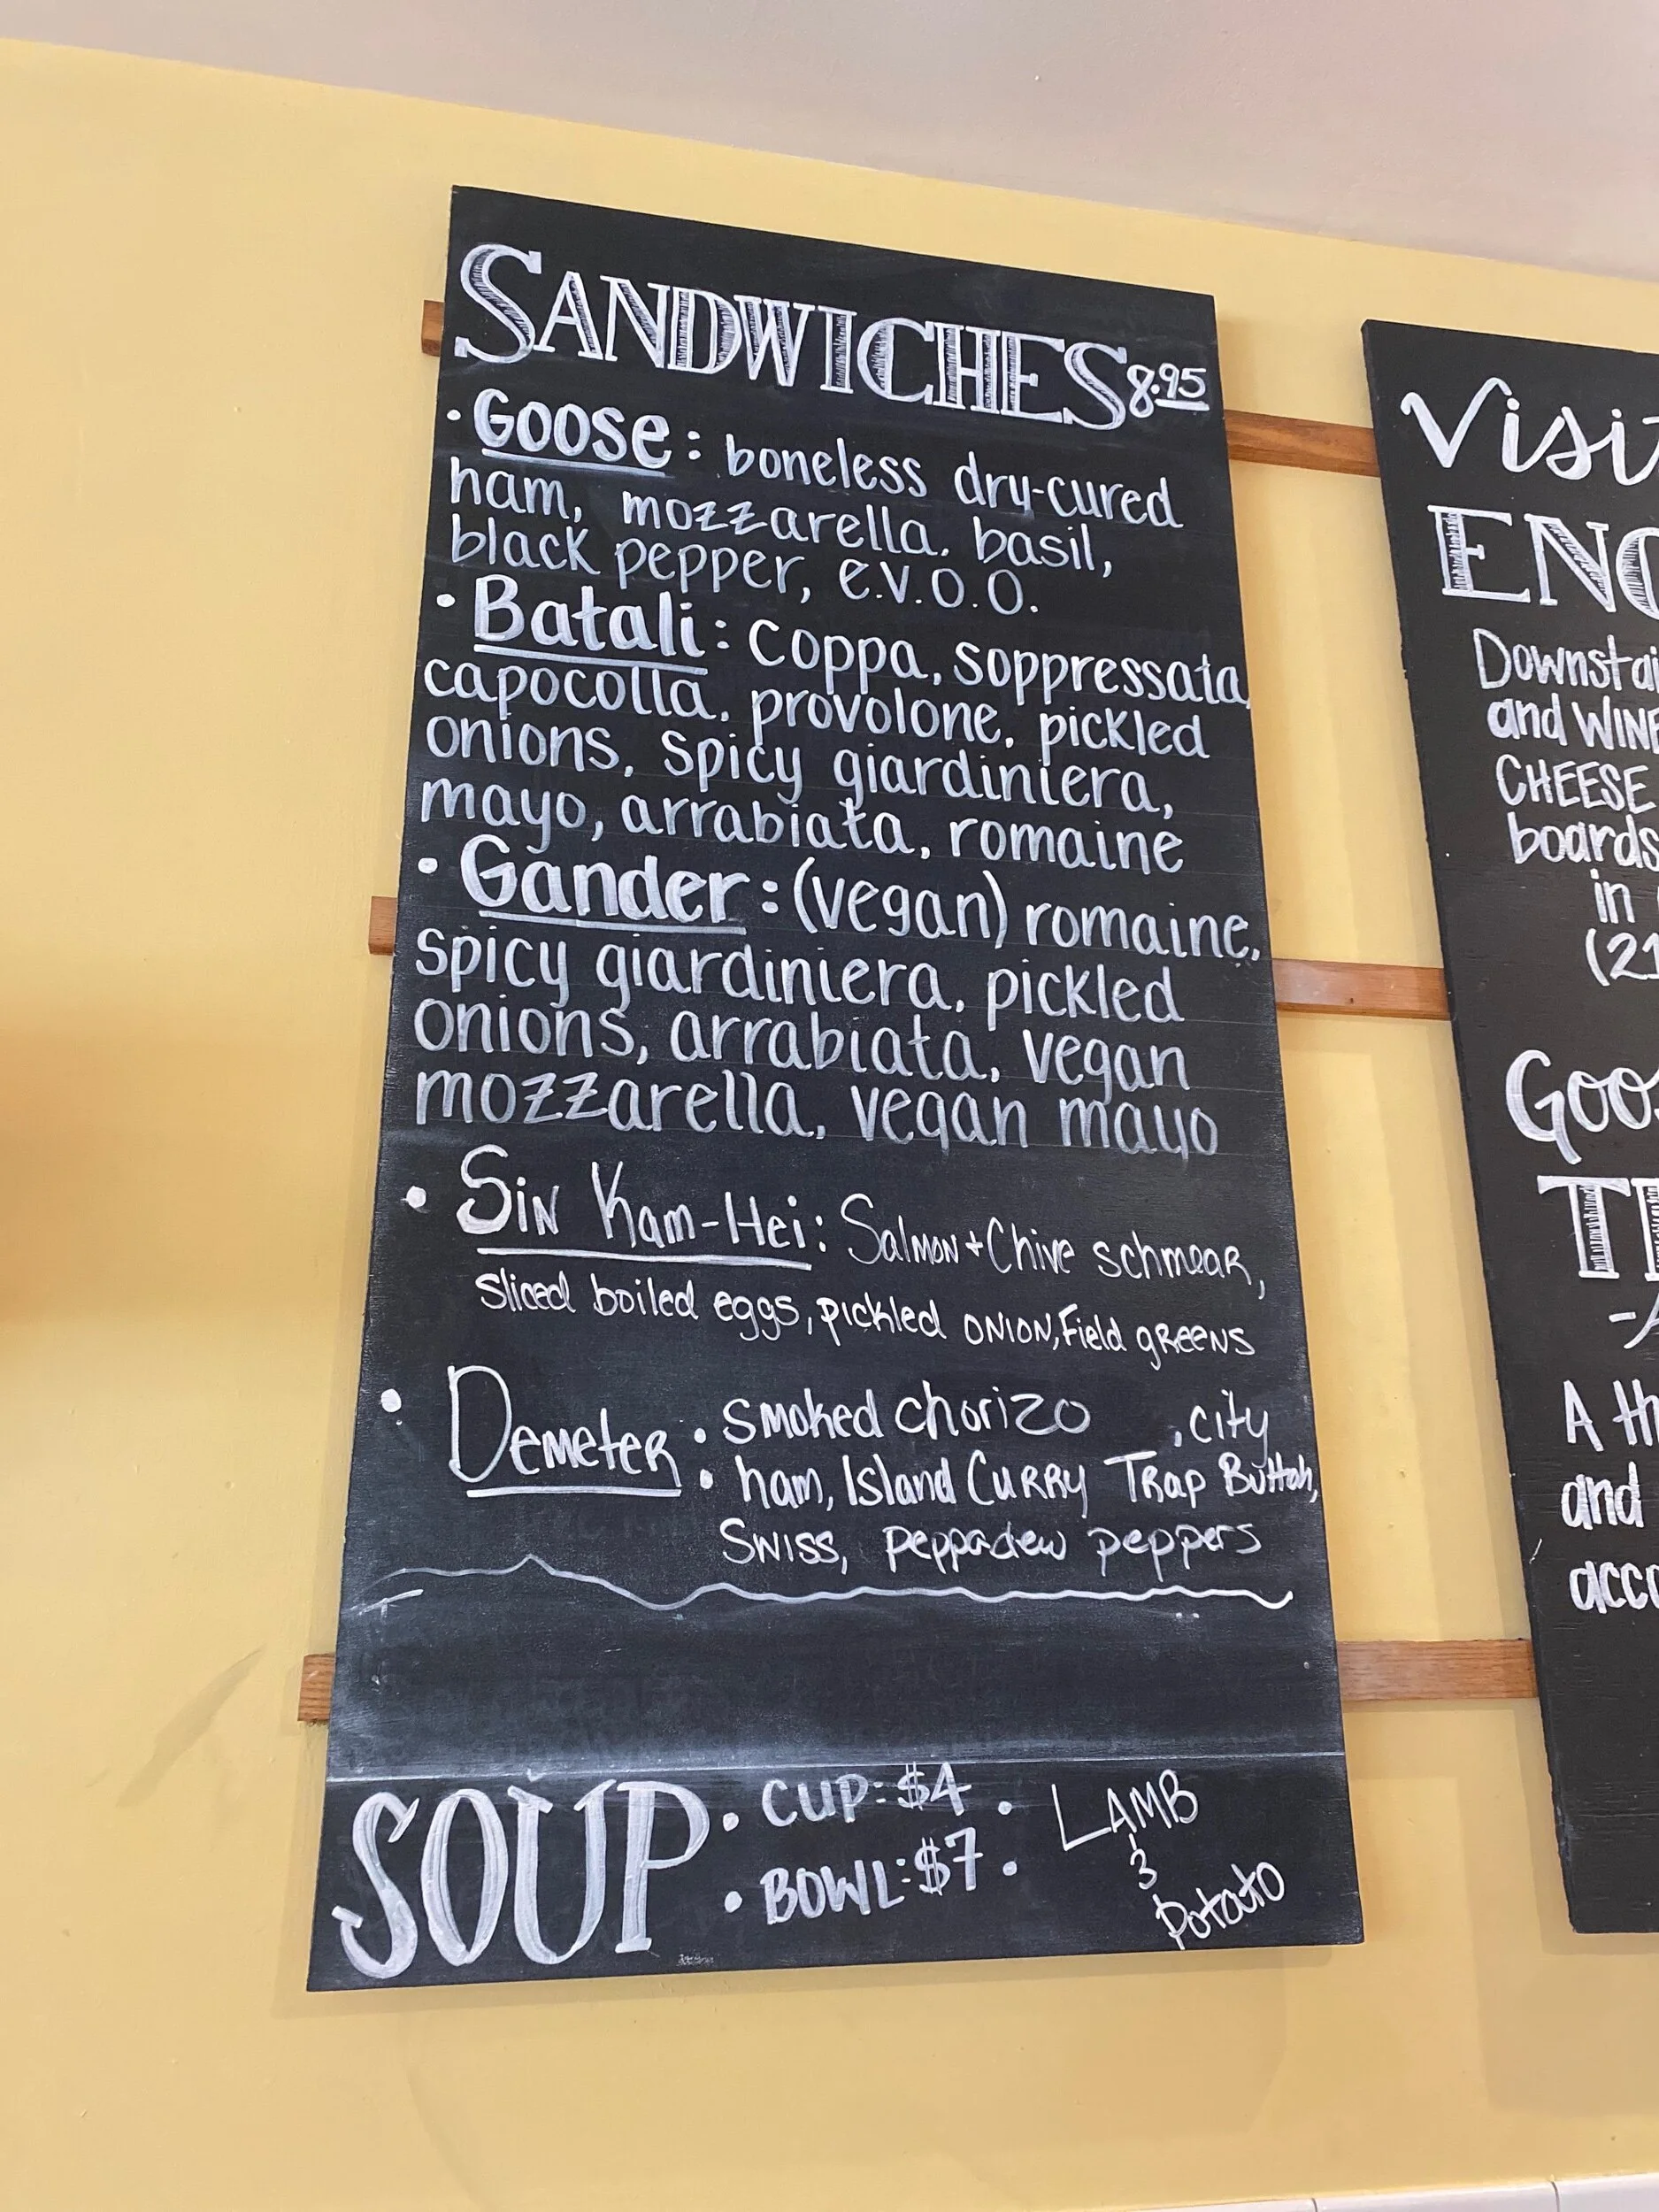 SANDWICHES 8.95
• Goose: boneless dry-cured
ham, mozzarella, basil,
black pepper, e.v.o.o.
• Batali: coppa, soppressata,
capocolla, provolone, pickled
onions, spicy giardiniera,
mayo, arrabiata, romaine
• Gander: (vegan) romaine,
spicy giardiniera, pickled
onions, arrabiata, vegan
mozzarella, vegan mayo
• Sin Kam-Hei: Salmon + Chive schmear,
sliced boiled eggs, pickled onion, Field greens
• Demeter: smoked chorizo , city
ham, Island Curry Trap Buttah,
Swiss, peppadew peppers
SOUP • CUP: $4 • LAMB
• BOWL: $7 • &
Potato
Visit
ENO
Downstai
and WINE
CHEESE
boards
in
(21
Goos
-A
A th
and
acco